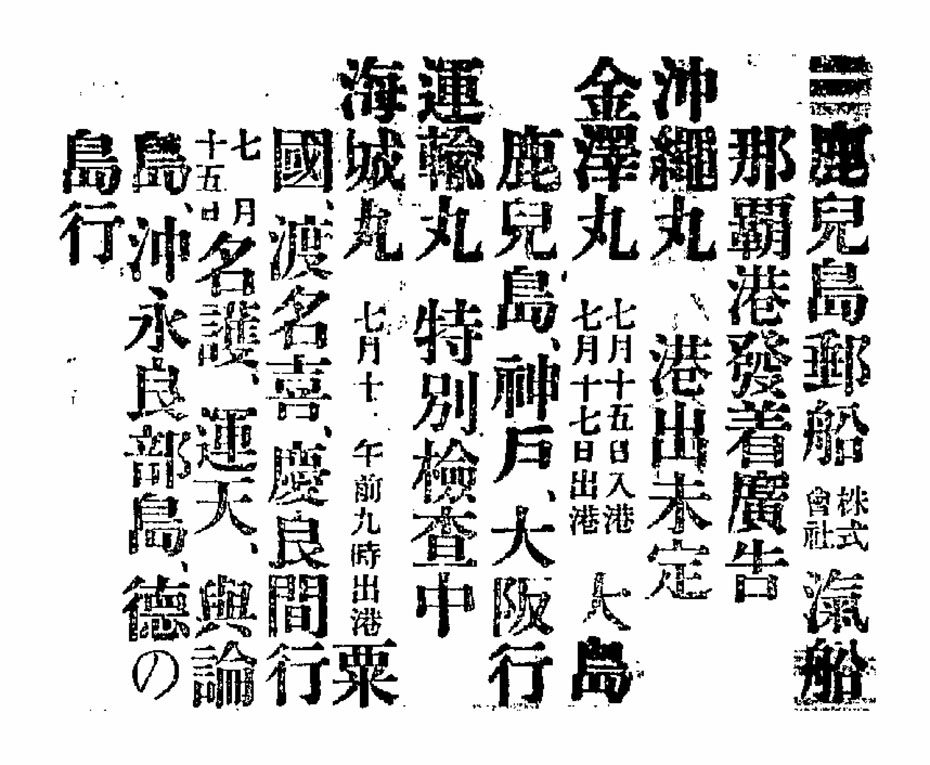 鹿兒島郵船株式會社滊船
那覇港發着廣告
沖繩丸 港出未定
金澤丸 七月十五日入港 七月十七日出港 大島
鹿兒島、神戸、大阪行
運輸丸 特別檢査中
海城丸 七月十 午前九時出港 粟
國、渡名喜、慶良間行
七月十五日 名護、運天、與論
島、沖永良部島、德の
島行